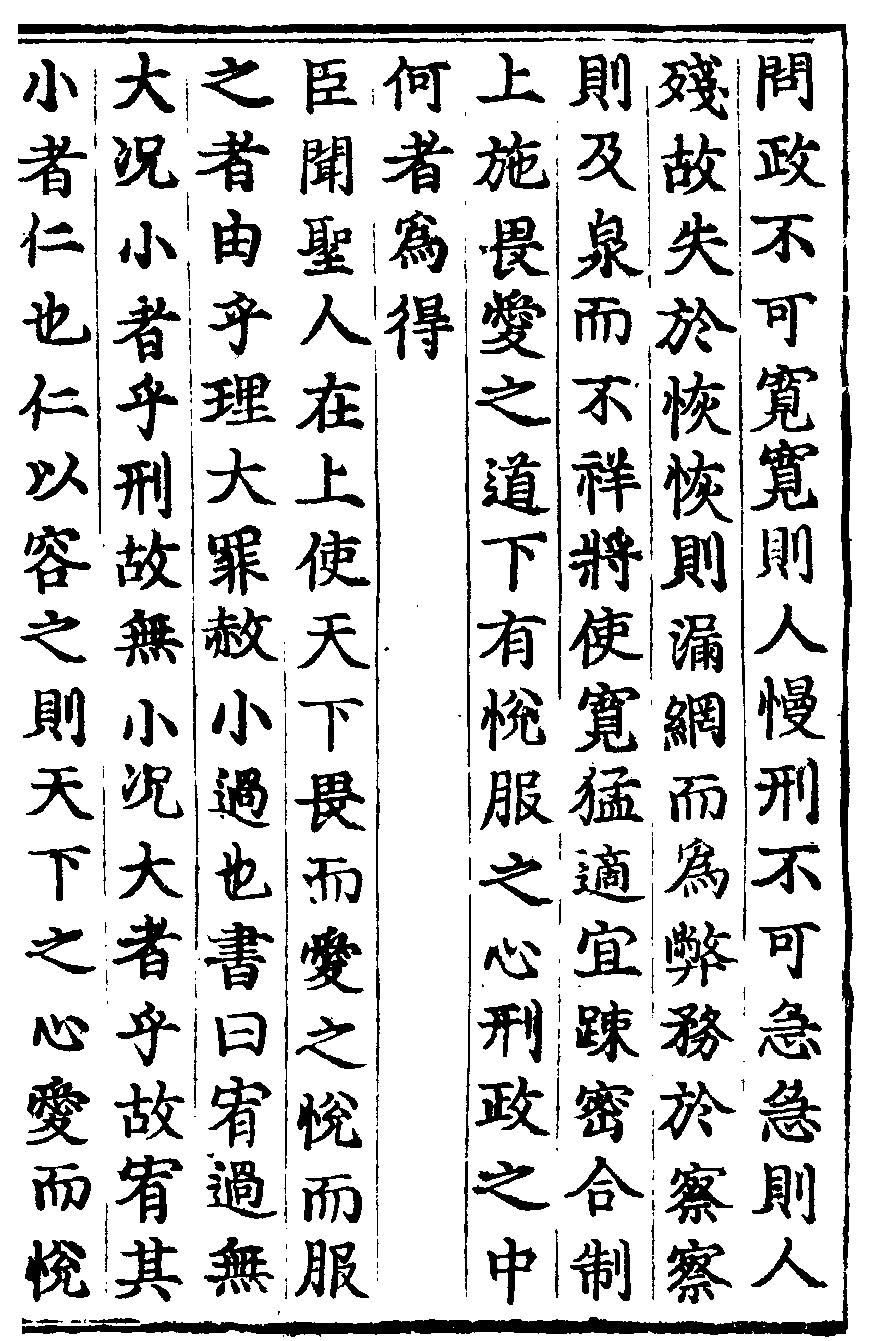 問政不可寛寛則人慢刑不可急急則人
殘故失於恢恢則漏網而爲弊務於察察
則及泉而不祥將使寛猛適宜踈密合制
上施畏愛之道下有恱服之心刑政之中
何者爲得
臣聞聖人在上使天下畏而愛之恱而服
之者由乎理大罪赦小過也書曰宥過無
大况小者乎刑故無小况大者乎故宥其
小者仁也仁以容之則天下之心愛而恱